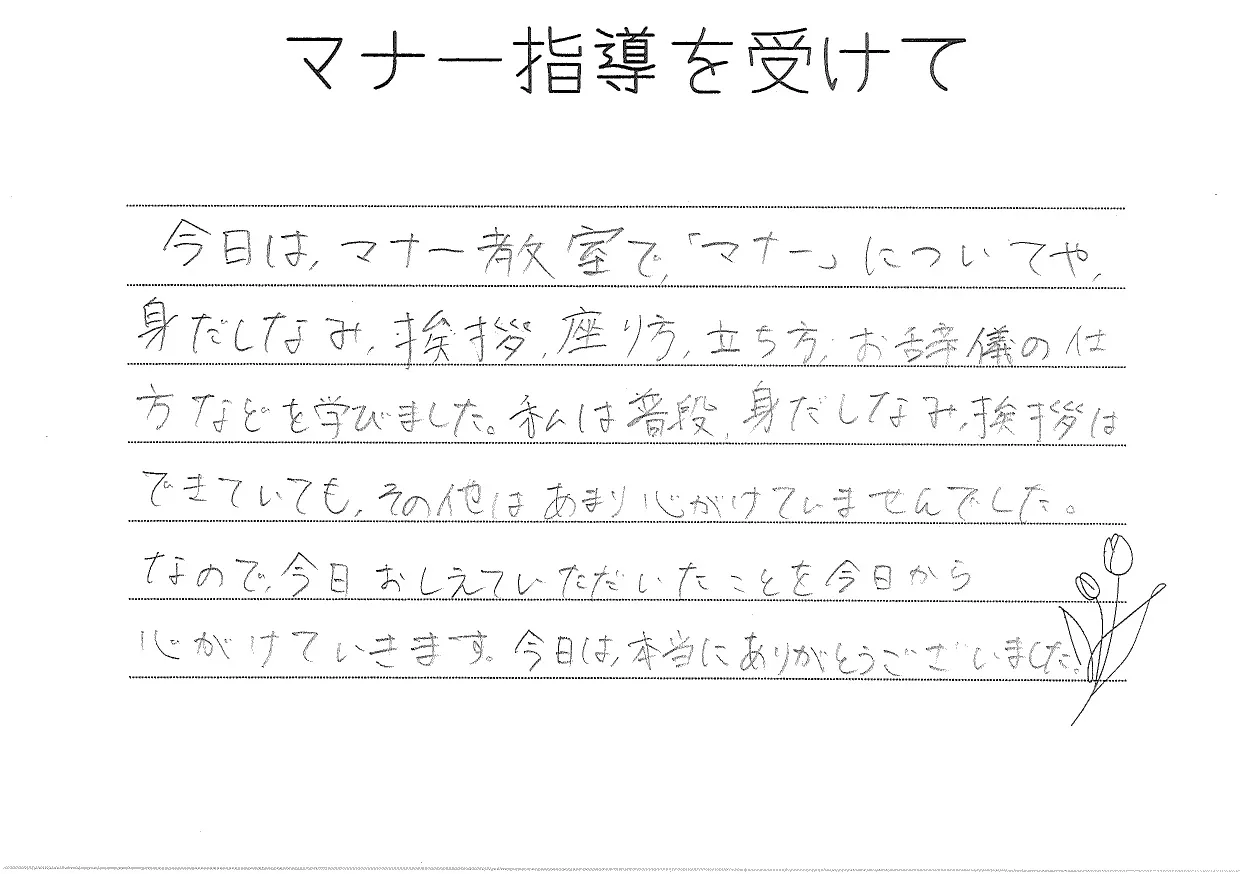 マナー指導を受けて
今日は,マナー教室で,「マナー」についてや,
身だしなみ,挨拶,座り方,立ち方,お辞儀の仕
方などを学びました。私は普段,身だしなみ,挨拶は
できていても,その他はあまり心がけていませんでした。
なので,今日おしえていただいたことを今日から
心がけていきます。今日は,本当にありがとうございました。